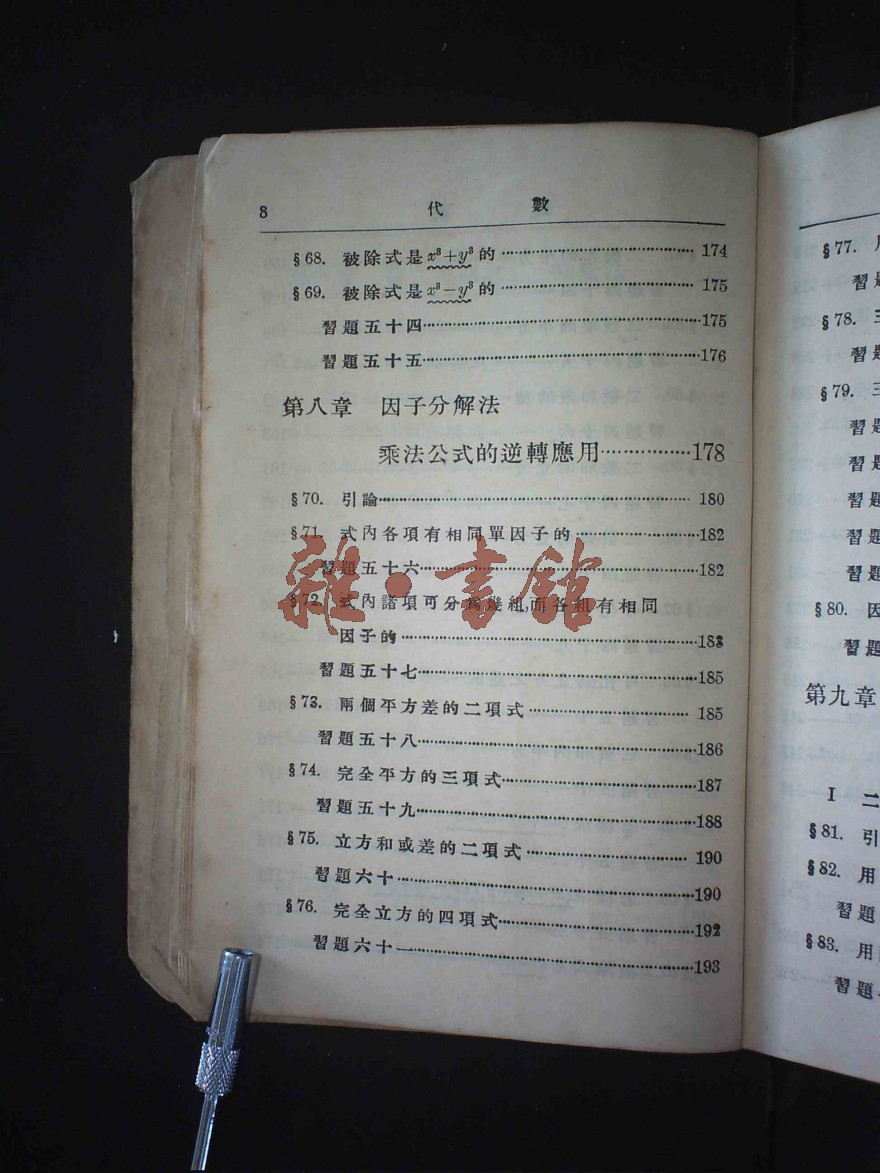 8 代 數
§68. 被除式是 x³+y³ 的 ⋯⋯⋯⋯ 174
§69. 被除式是 x³−y³ 的 ⋯⋯⋯⋯ 175
習題五十四⋯⋯⋯⋯175
習題五十五⋯⋯⋯⋯176
第八章 因子分解法
乘法公式的逆轉應用⋯⋯⋯⋯178
§70. 引論⋯⋯⋯⋯ 180
§71. 式內各項有相同單因子的⋯⋯⋯⋯182
習題五十六⋯⋯⋯⋯182
§72. 式內諸項可分爲幾組,而各組有相同
因子的⋯⋯⋯⋯183
習題五十七⋯⋯⋯⋯185
§73. 兩個平方差的二項式⋯⋯⋯⋯ 185
習題五十八⋯⋯⋯⋯186
§74. 完全平方的三項式⋯⋯⋯⋯187
習題五十九⋯⋯⋯⋯188
§75. 立方和或差的二項式⋯⋯⋯⋯ 190
習題六十⋯⋯⋯⋯190
§76. 完全立方的四項式⋯⋯⋯⋯192
習題六十一⋯⋯⋯⋯193
雜·書館
§77.
習
§78. 三
習
§79. 三
習
習
習
習題
習題
§80. 因
習題
第九章
I 二
§81. 引
§82. 用
習題
§83. 用
習題